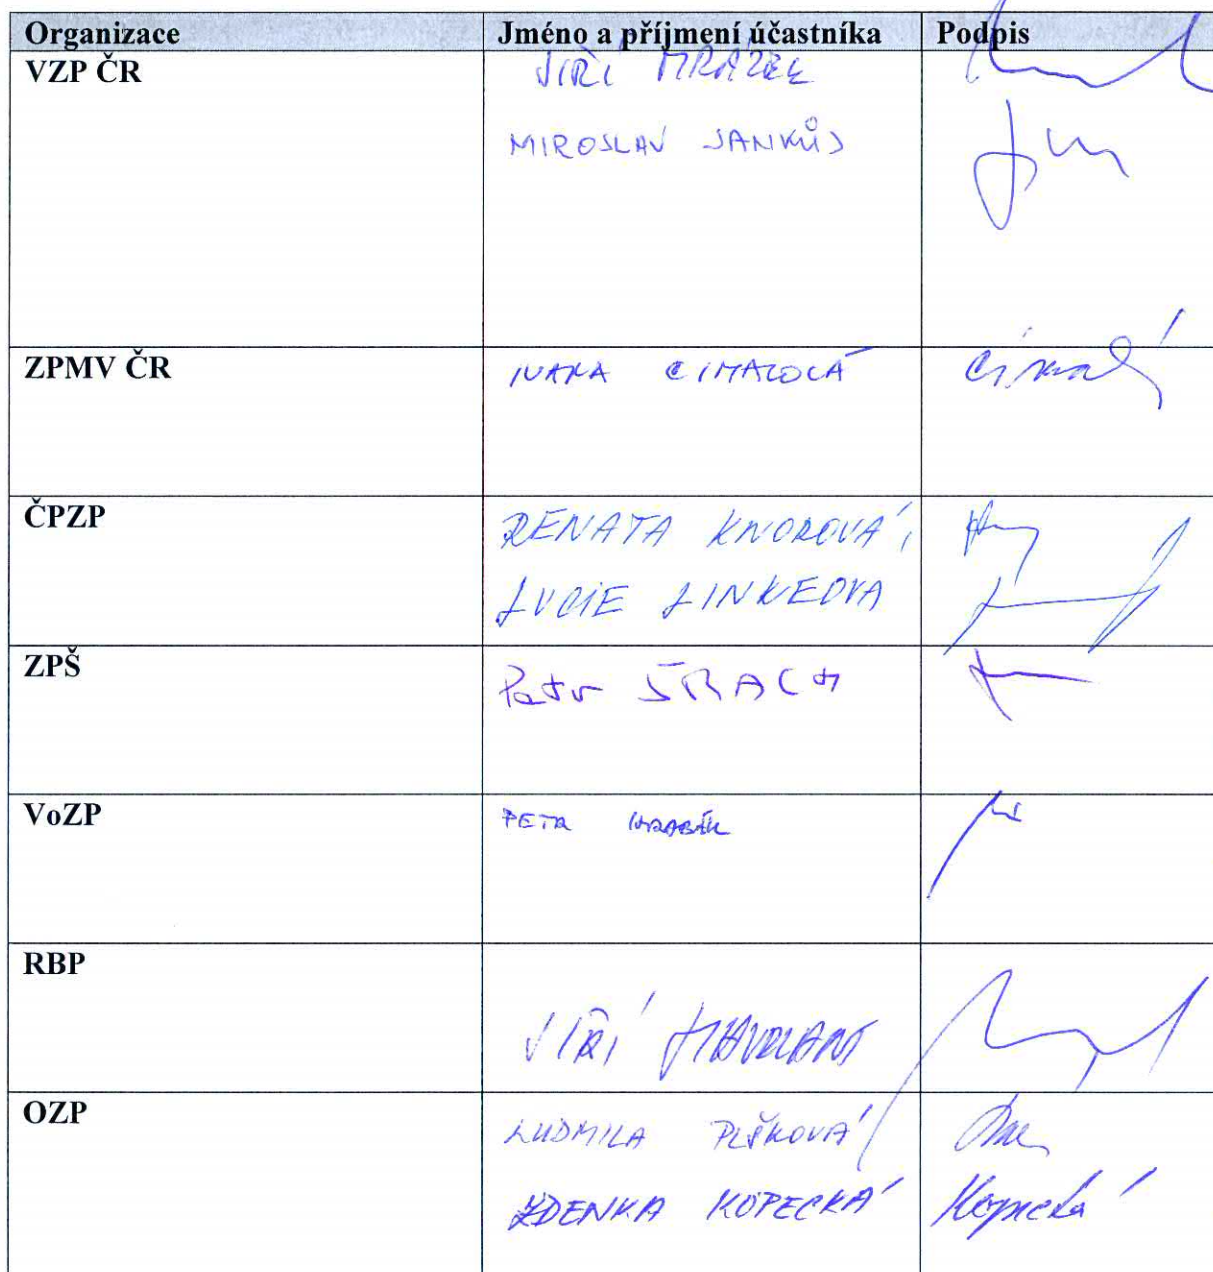 Organizace Jméno a příjmení účastníka Podpis
VZP ČR JIŘÍ MRÁZEK
MIROSLAV JANKŮJ
ZPMV ČR IVANA
ČPZP RENATA KNOROVÁ,
LUCIE LINKEOVA
ZPŠ Petr ŠRACH
VoZP PETR HRABÁK
RBP JIŘÍ
OZP LUDMILA PLŠKOVÁ
ZDENKA KOPECKÁ Kopecká